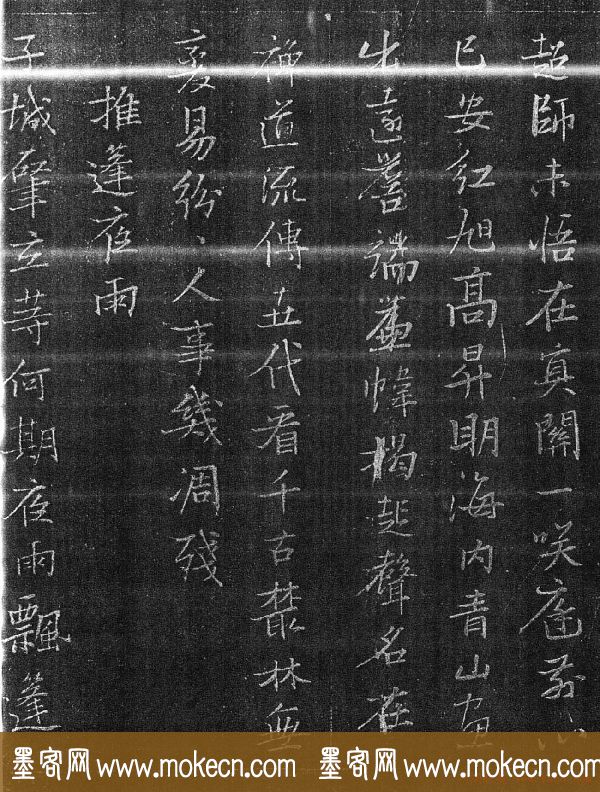 超師未悟在真關一咲庭前心
已安紅旭高昇明海内青山
出遠簷端蓋幃揭起聲名在
禅道流傳五代看千古叢林無
変易紛〻人事幾凋残
推蓬夜雨
子城肇立荨何期夜雨飄蓬
墨客网 www.mokecn.com 墨客网 www.mokecn.com